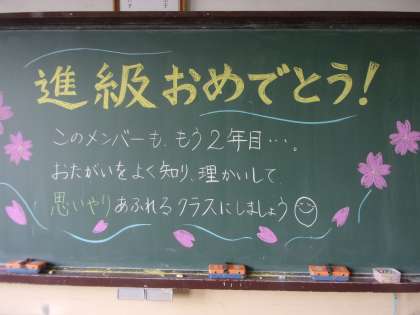 進級おめでとう!
このメンバーも、もう2年目…。
おたがいをよく知り、理かいして、
思いやりあふれるクラスにしましょう